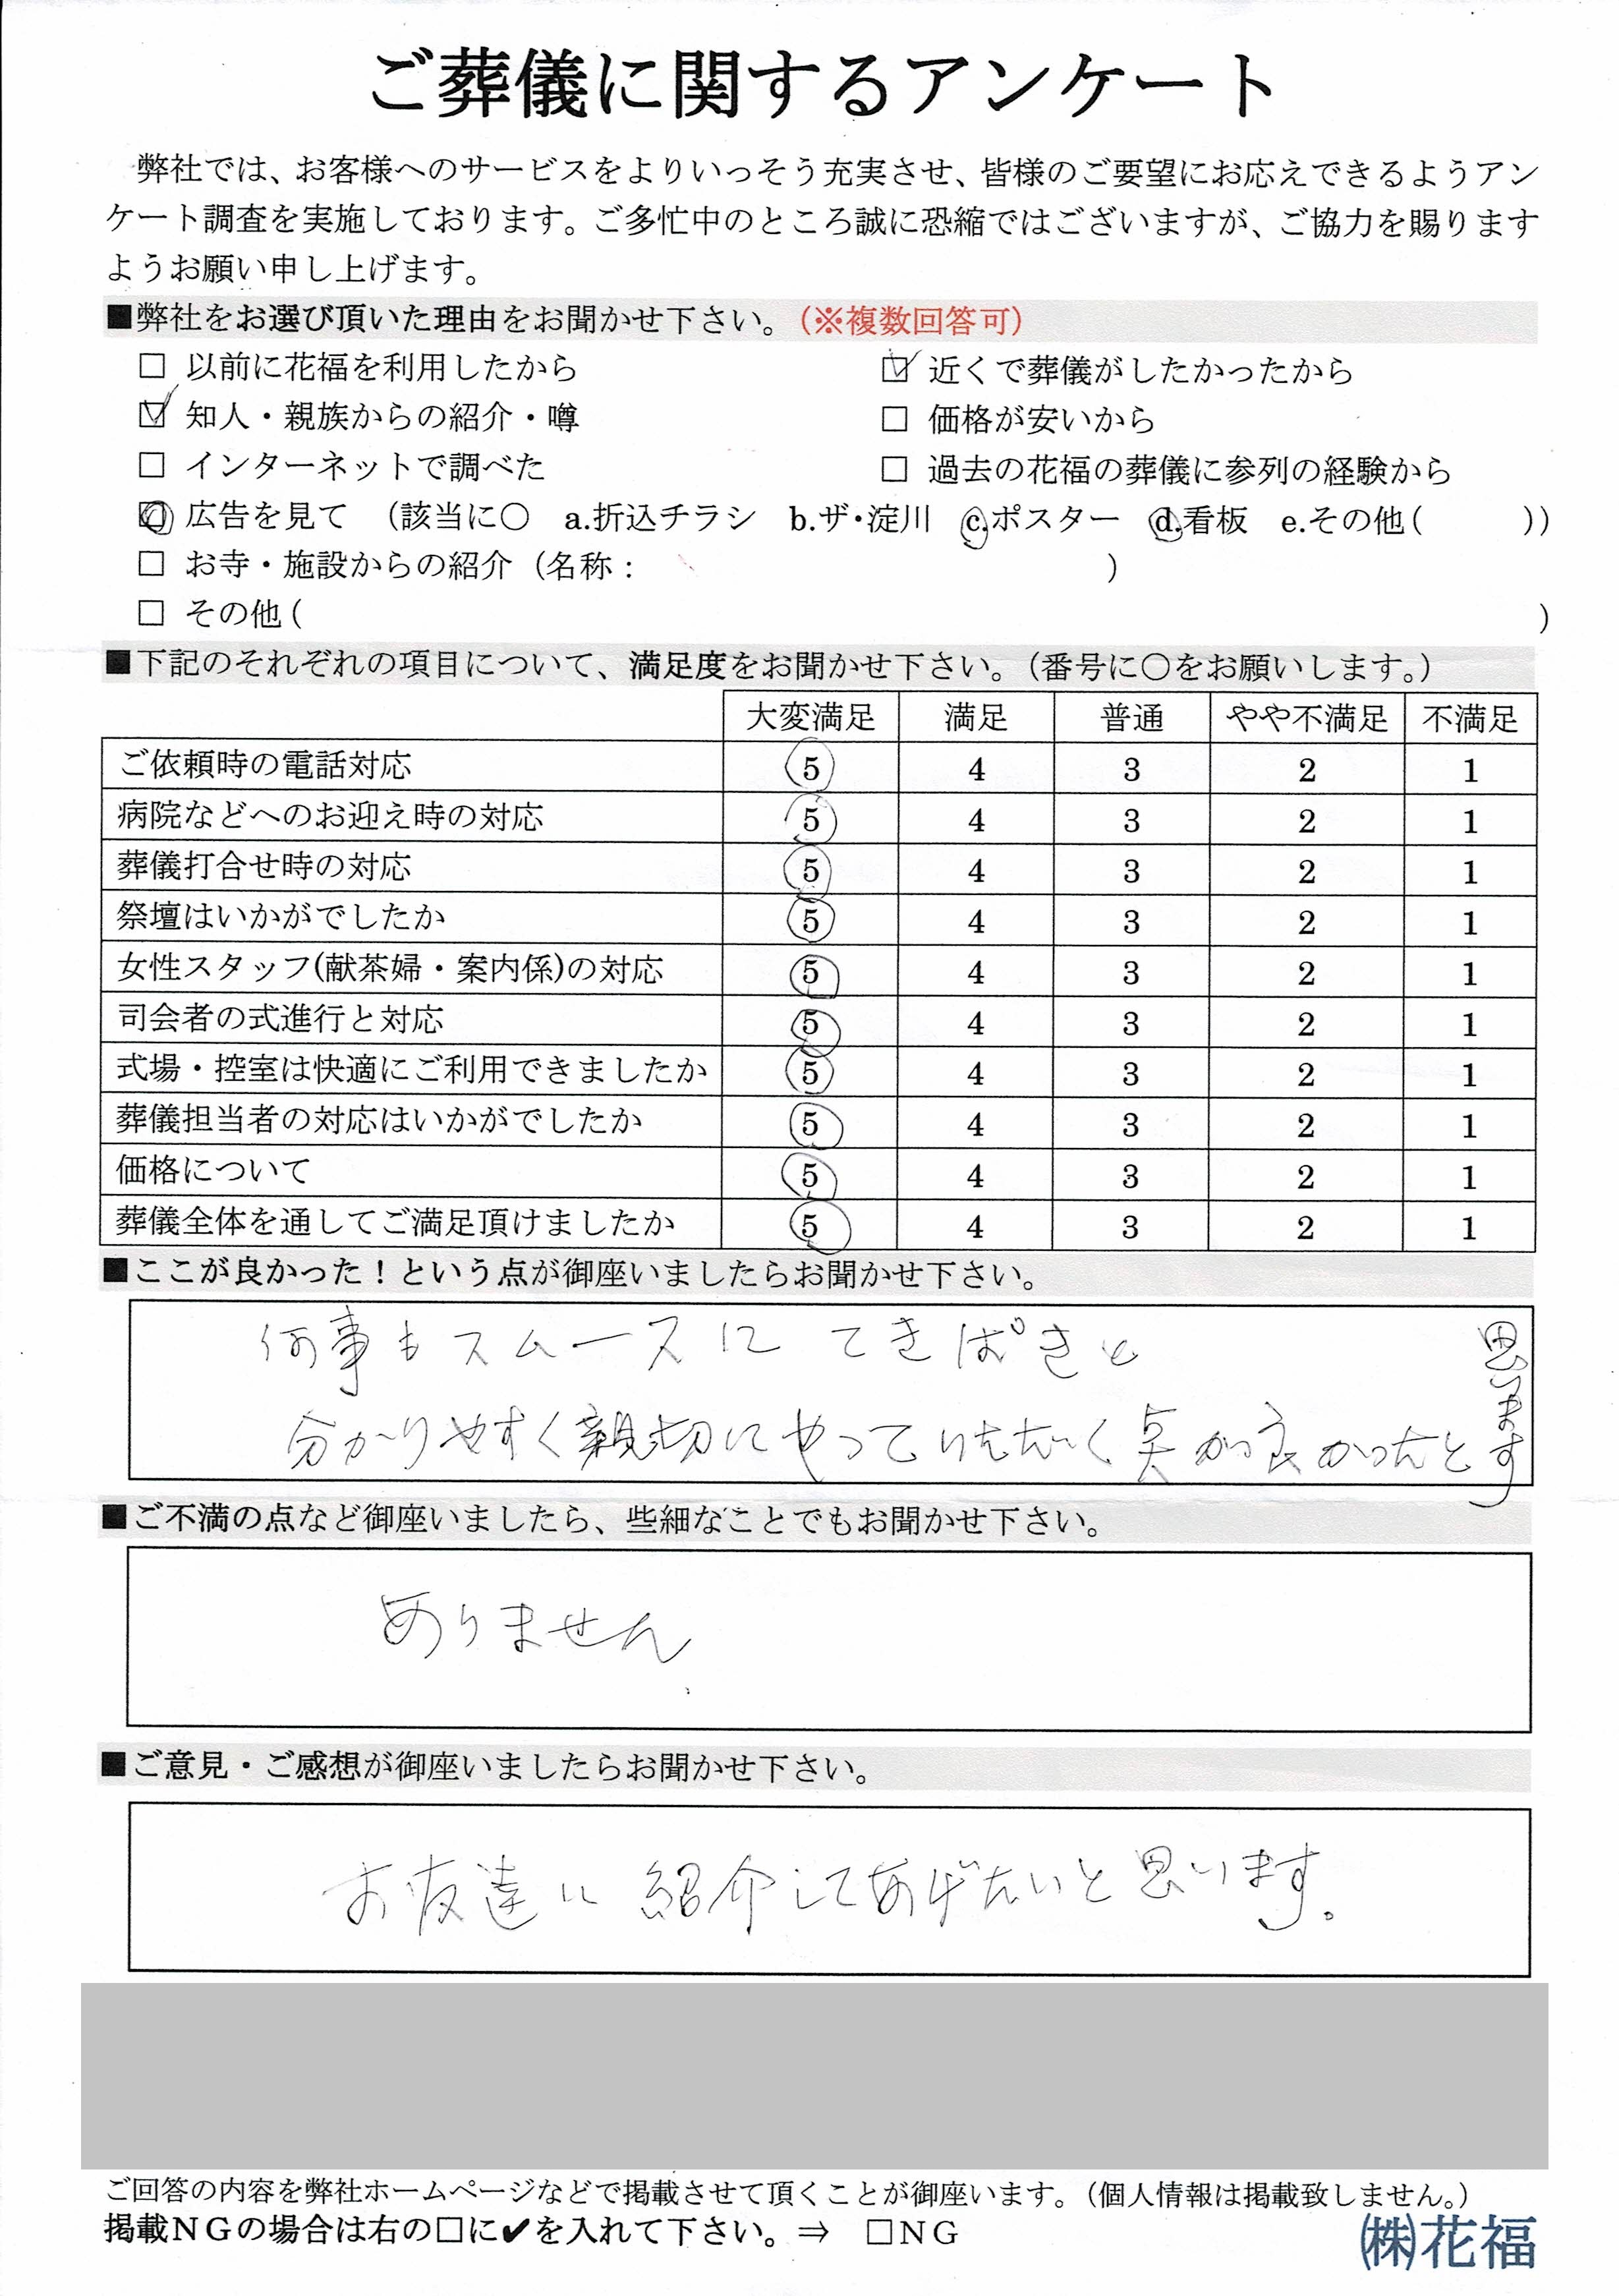 ご葬儀に関するアンケート
弊社では、お客様へのサービスをよりいっそう充実させ、皆様のご要望にお応えできるようアン
ケート調査を実施しております。ご多忙中のところ誠に恐縮ではございますが、ご協力を賜ります
ようお願い申し上げます。
■弊社をお選び頂いた理由をお聞かせ下さい。（※複数回答可）
□ 以前に花福を利用したから
☑ 近くで葬儀がしたかったから
☑ 知人・親族からの紹介・噂
□ 価格が安いから
□ インターネットで調べた
□ 過去の花福の葬儀に参列の経験から
□ 広告を見て （該当に○ a.折込チラシ b.ザ・淀川 c.ポスター d.看板 e.その他( ))
□ お寺・施設からの紹介（名称： ）
□ その他( )
■下記のそれぞれの項目について、満足度をお聞かせ下さい。（番号に○をお願いします。）
大変満足 満足 普通 やや不満足 不満足
ご依頼時の電話対応 5 4 3 2 1
病院などへのお迎え時の対応 5 4 3 2 1
葬儀打合せ時の対応 5 4 3 2 1
祭壇はいかがでしたか 5 4 3 2 1
女性スタッフ(献茶婦・案内係)の対応 5 4 3 2 1
司会者の式進行と対応 5 4 3 2 1
式場・控室は快適にご利用できましたか 5 4 3 2 1
葬儀担当者の対応はいかがでしたか 5 4 3 2 1
価格について 5 4 3 2 1
葬儀全体を通してご満足頂けましたか 5 4 3 2 1
■ここが良かった！という点が御座いましたらお聞かせ下さい。
何事もスムースに てきぱきと
分かりやすく親切にやっていただく点が良かったと
思います
■ご不満の点など御座いましたら、些細なことでもお聞かせ下さい。
ありません
■ご意見・ご感想が御座いましたらお聞かせ下さい。
お友達に紹介してあげたいと思います。
ご回答の内容を弊社ホームページなどで掲載させて頂くことが御座います。（個人情報は掲載致しません。）
掲載NGの場合は右の□に✔を入れて下さい。⇒ □NG
㈱花福